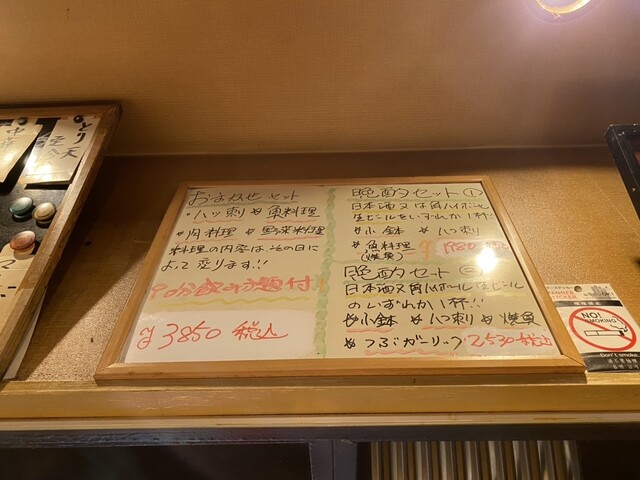 おまかせセット
・八ッ刺 ※ 魚料理
※肉料理 ※ 野菜料理
料理の内容は、その日に
よって変ります!!
90分飲み放題付!
¥3850 税込
晩酌セット①
日本酒又は角ハイボール
生ビールをいずれか1杯!!
※小鉢 ※ 八ッ刺
※魚料理
(焼魚)
1980 税込
晩酌セット②
日本酒又角ハイボール 生ビール
のいずれか1杯!!
※小鉢 ※ 八ッ刺 ※ 焼魚
※つぶガーリック 2530税込
とり天
NO!
SMOKING
Don't smoke